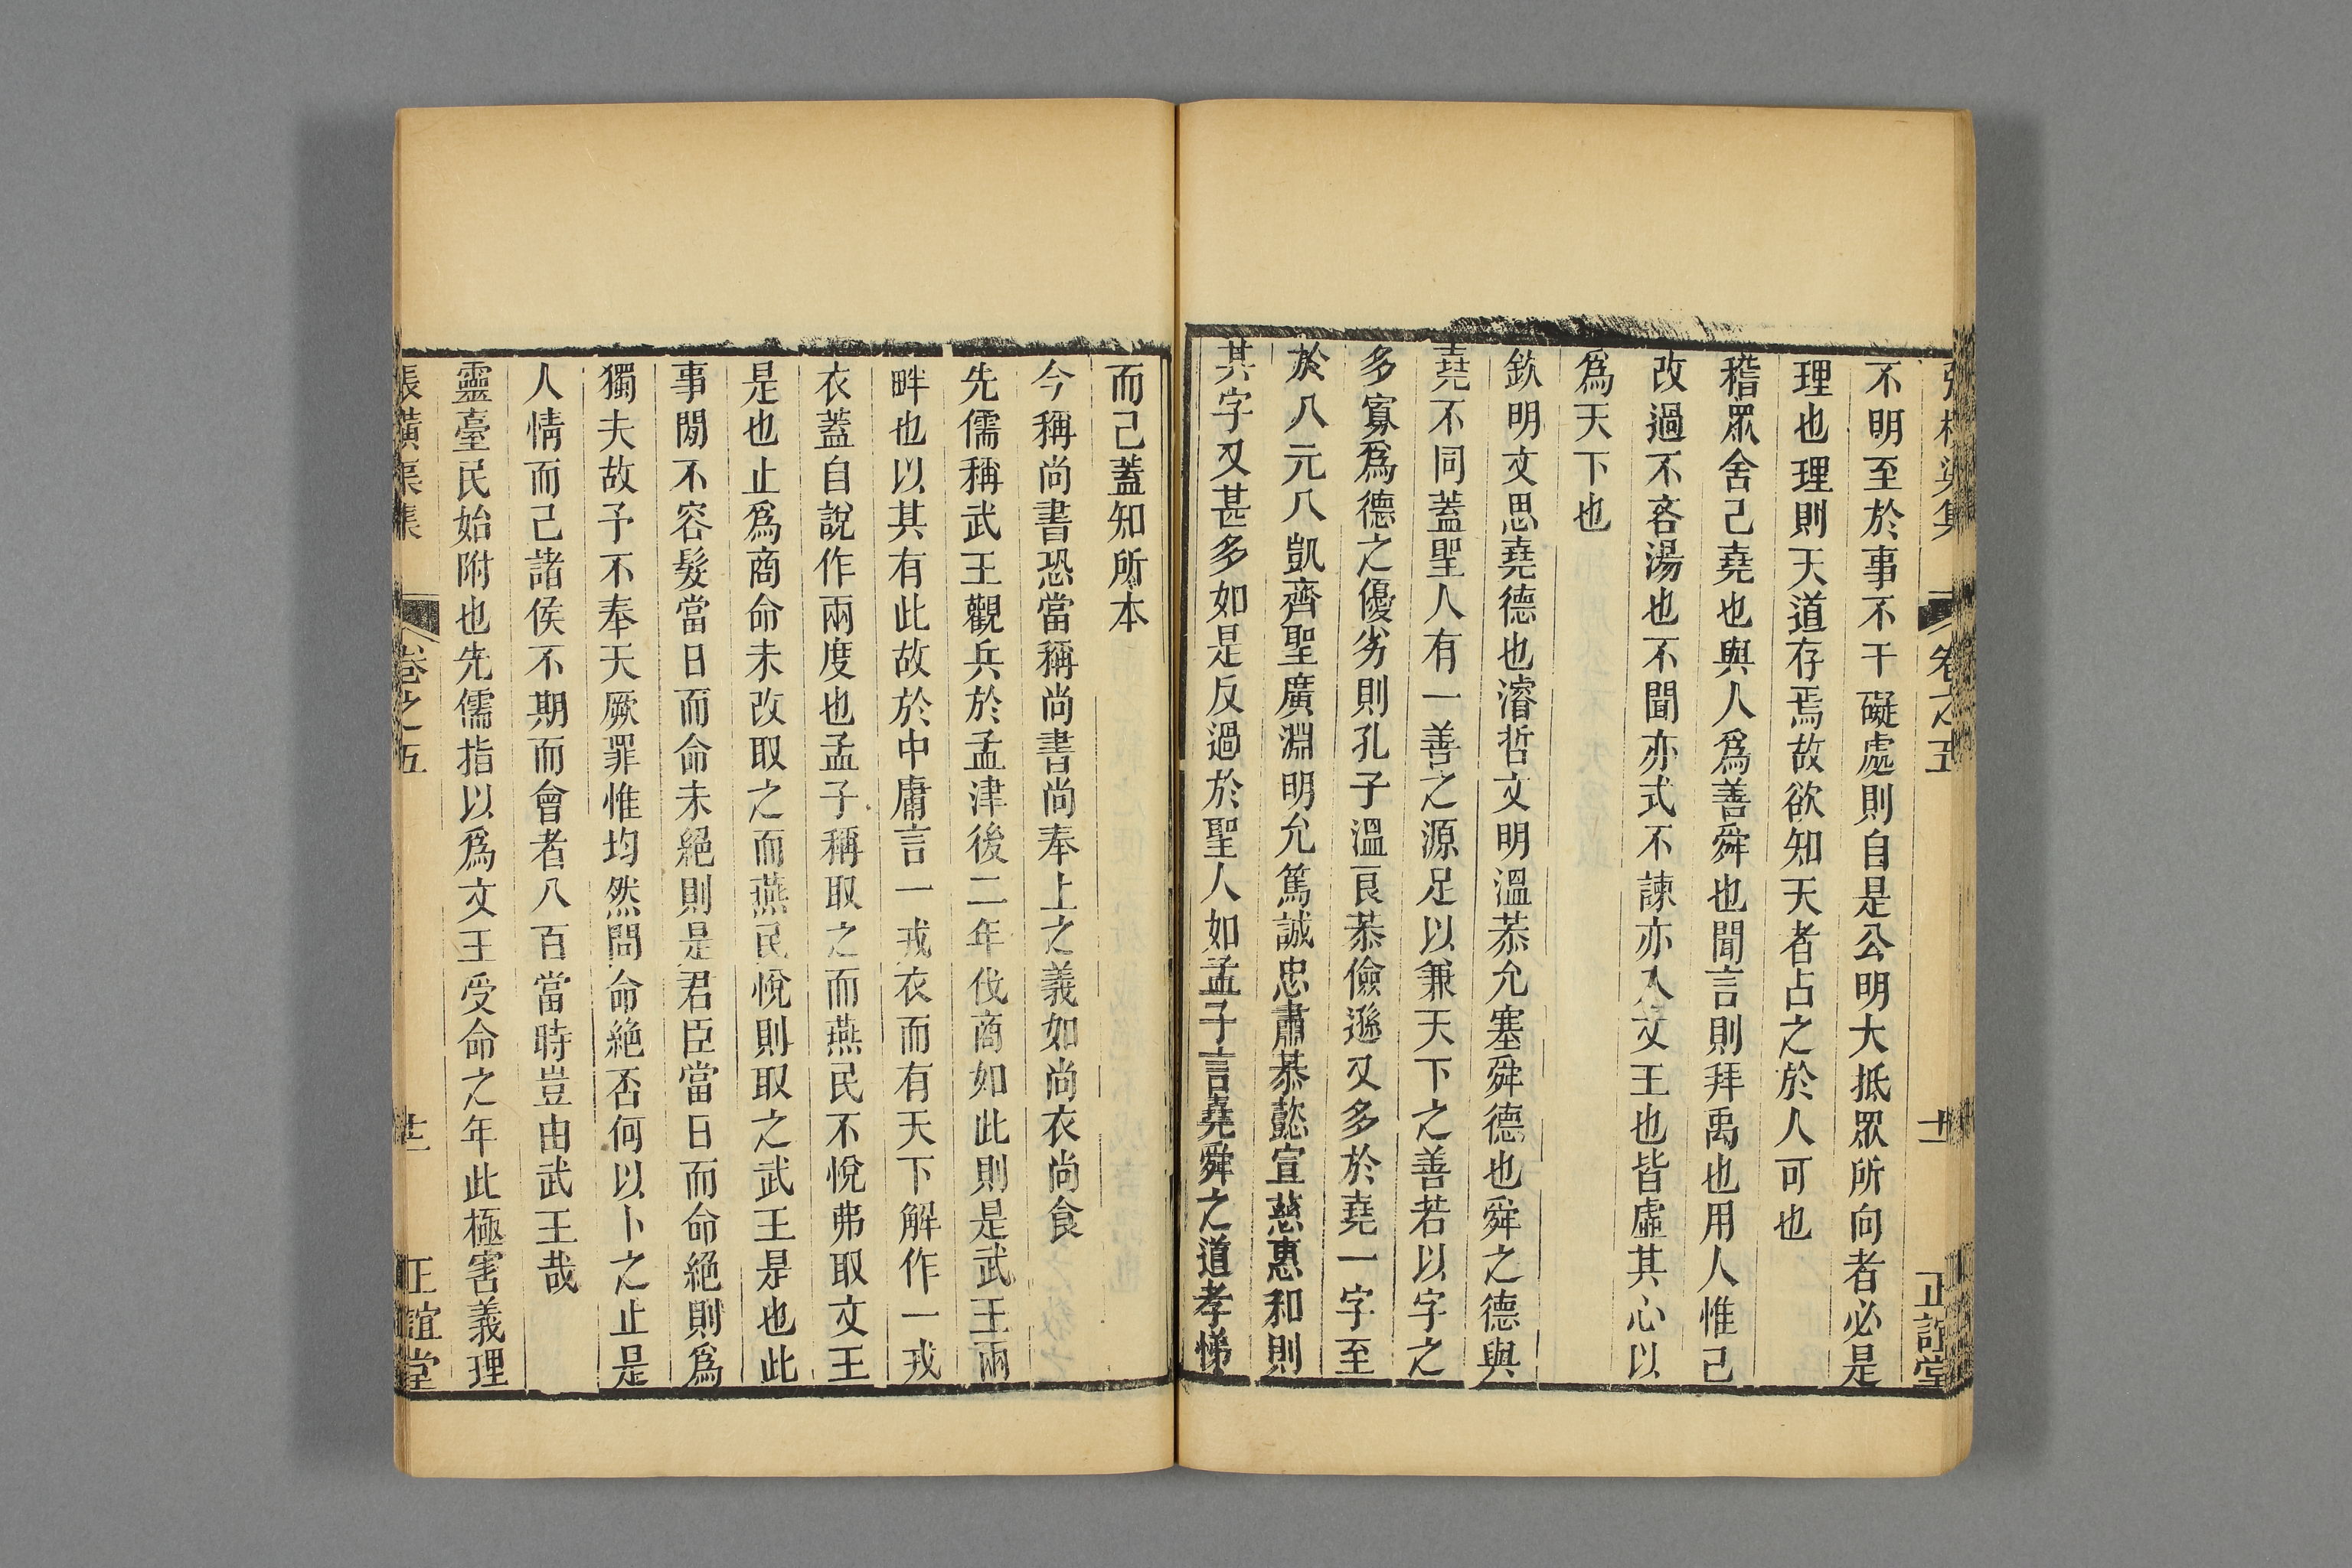 張橫渠集 卷之五 廿一 正誼堂
不明至於事不干礙處則自是公明大抵眾所向者必是
理也理則天道存焉故欲知天者占之於人可也
稽眾舍己堯也與人爲善舜也聞言則拜禹也用人惟己
改過不吝湯也不聞亦式不諫亦入文王也皆虛其心以
爲天下也
欽明文思堯德也濬哲文明溫恭允塞舜德也舜之德與
堯不同蓋聖人有一善之源足以兼天下之善若以字之
多寡爲德之優劣則孔子溫良恭儉遜又多於堯一字至
於八元八凱齊聖廣淵明允篤誠忠肅恭懿宣慈惠和則
其字又甚多如是反過於聖人如孟子言堯舜之道孝悌
而己蓋知所本
今稱尚書恐當稱尚書尚奉上之義如尚衣尚食
先儒稱武王觀兵於孟津後二年伐商如此則是武王兩
畔也以其有此故於中庸言一戎衣而有天下解作一戎
衣蓋自說作兩度也孟子稱取之而燕民不悅弗取文王
是也止爲商命未改取之而燕民悅則取之武王是也此
事閒不容髮當日而命未絕則是君臣當日而命絕則爲
獨夫故予不奉天厥罪惟均然問命絕否何以卜之止是
人情而己諸侯不期而會者八百當時豈由武王哉
靈臺民始附也先儒指以爲文王受命之年此極害義理
張橫渠集 卷之五 廿二 正誼堂